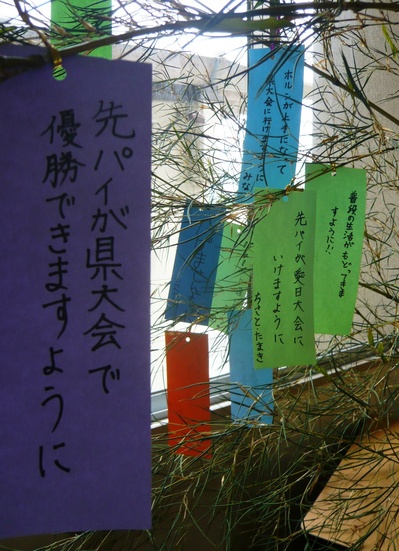 先パイが県大会で
優勝できますように
ホルンが上手になって
県大会に行けますように
みな
先パイが日大会に
いけますように
ちさと・たまき
普段の生活がもどってきま
すように!!